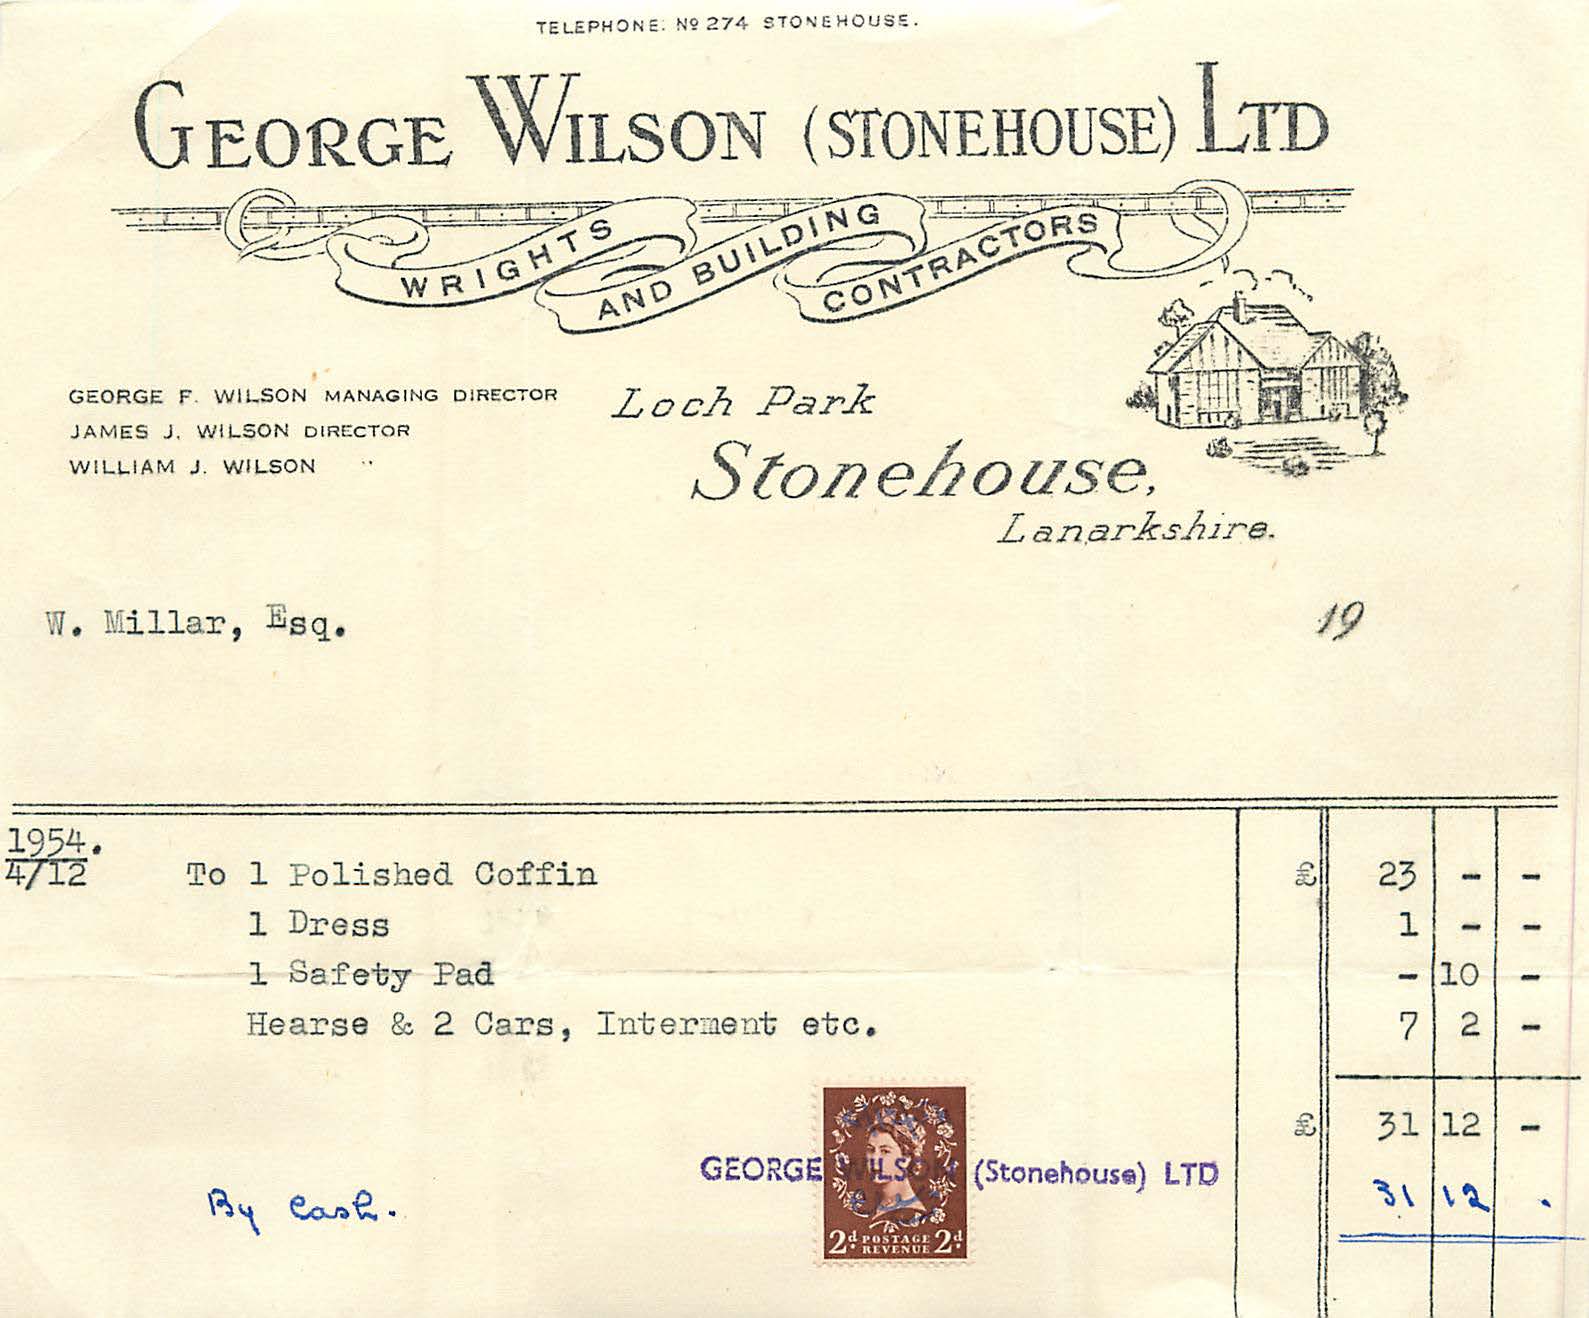 TELEPHONE: Nº 274 STONEHOUSE.
GEORGE WILSON (STONEHOUSE) LTD
WRIGHTS AND BUILDING CONTRACTORS
GEORGE F. WILSON MANAGING DIRECTOR
JAMES J. WILSON DIRECTOR
WILLIAM J. WILSON "
Loch Park
Stonehouse,
Lanarkshire.
W. Millar, Esq.
19
1954.
4/12 To 1 Polished Coffin £ 23 - -
1 Dress 1 - -
1 Safety Pad - 10 -
Hearse & 2 Cars, Interment etc. 7 2 -
£ 31 12 -
GEORGE WILSON (Stonehouse) LTD
By Cash. 31 12 .
2d. POSTAGE REVENUE 2d.